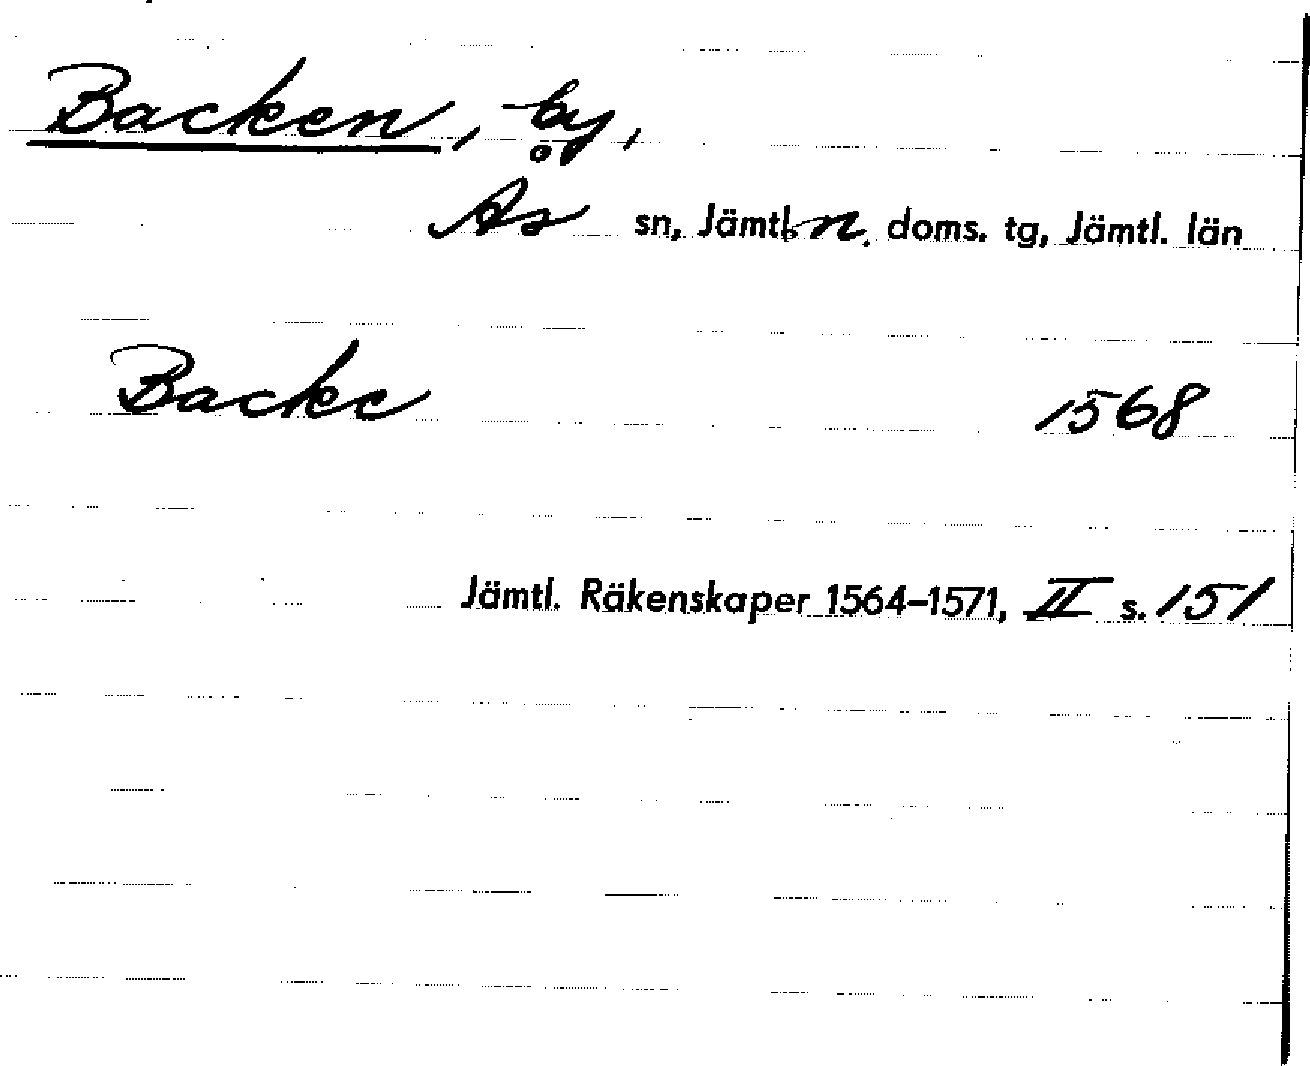 Backen, by,
Ås sn, Jämtl. n. doms. tg, Jämtl. län
Backe 1568
Jämtl. Räkenskaper 1564-1571, II s. 151